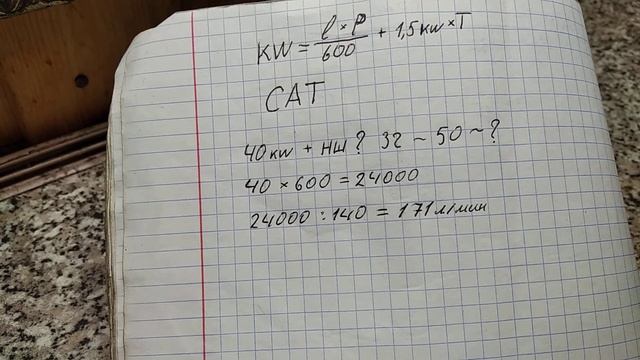 KW = l × P / 600 + 1,5 KW × T
САТ
40 KW + НШ ? 32 ~ 50 ~ ?
40 × 600 = 24000
24000 : 140 = 171 л/мин